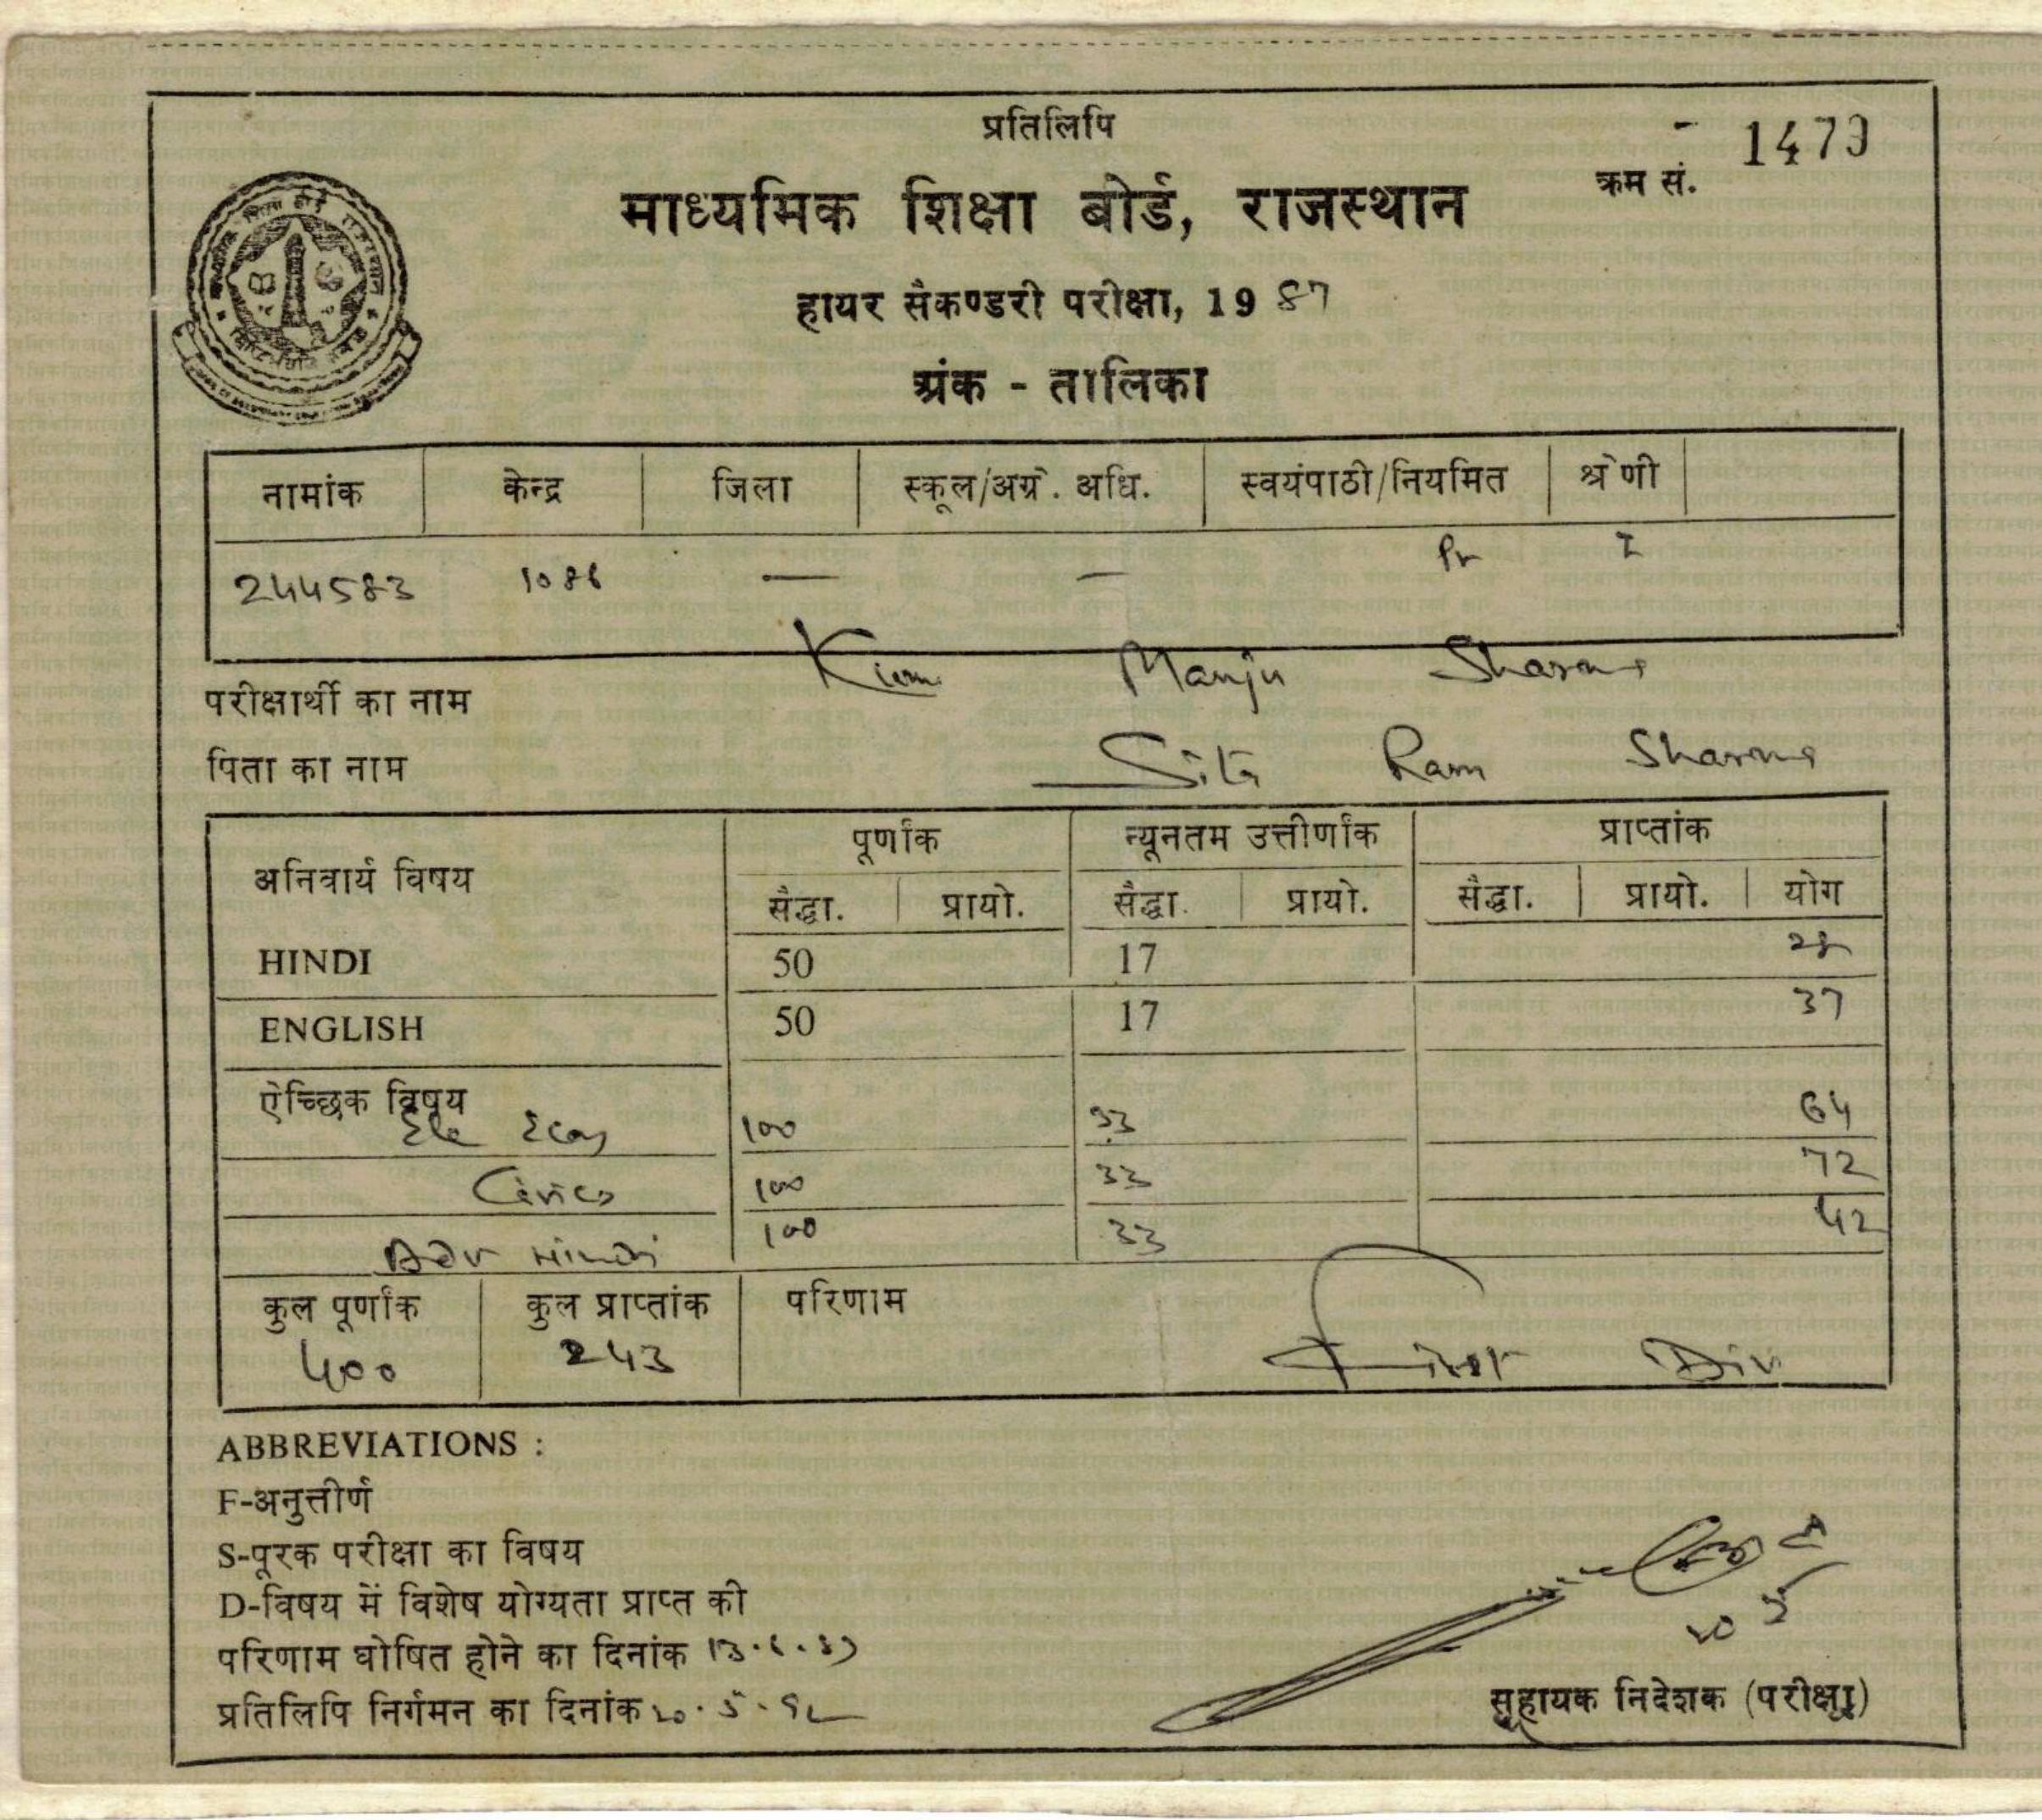 प्रतिलिपि
क्रम सं. 1479
माध्यमिक शिक्षा बोर्ड, राजस्थान
हायर सैकण्डरी परीक्षा, 1987
अंक - तालिका
नामांक केन्द्र जिला स्कूल/अग्रे. अधि. स्वयंपाठी/नियमित श्रेणी
244583 1086 — — Pr I
परीक्षार्थी का नाम Kum. Manju Sharma
पिता का नाम Sita Ram Sharma
अनिवार्य विषय पूर्णांक न्यूनतम उत्तीर्णांक प्राप्तांक
सैद्धा. प्रायो. सैद्धा. प्रायो. सैद्धा. प्रायो. योग
HINDI 50 17 28
ENGLISH 50 17 37
ऐच्छिक विषय
Ele 100 33 64
Civics 100 33 72
Adv Hindi 100 33 42
कुल पूर्णांक कुल प्राप्तांक परिणाम
400 243 First Div
ABBREVIATIONS :
F-अनुत्तीर्ण
S-पूरक परीक्षा का विषय
D-विषय में विशेष योग्यता प्राप्त की
परिणाम घोषित होने का दिनांक 13.6.87
प्रतिलिपि निर्गमन का दिनांक 20.5.92
सहायक निदेशक (परीक्षा)